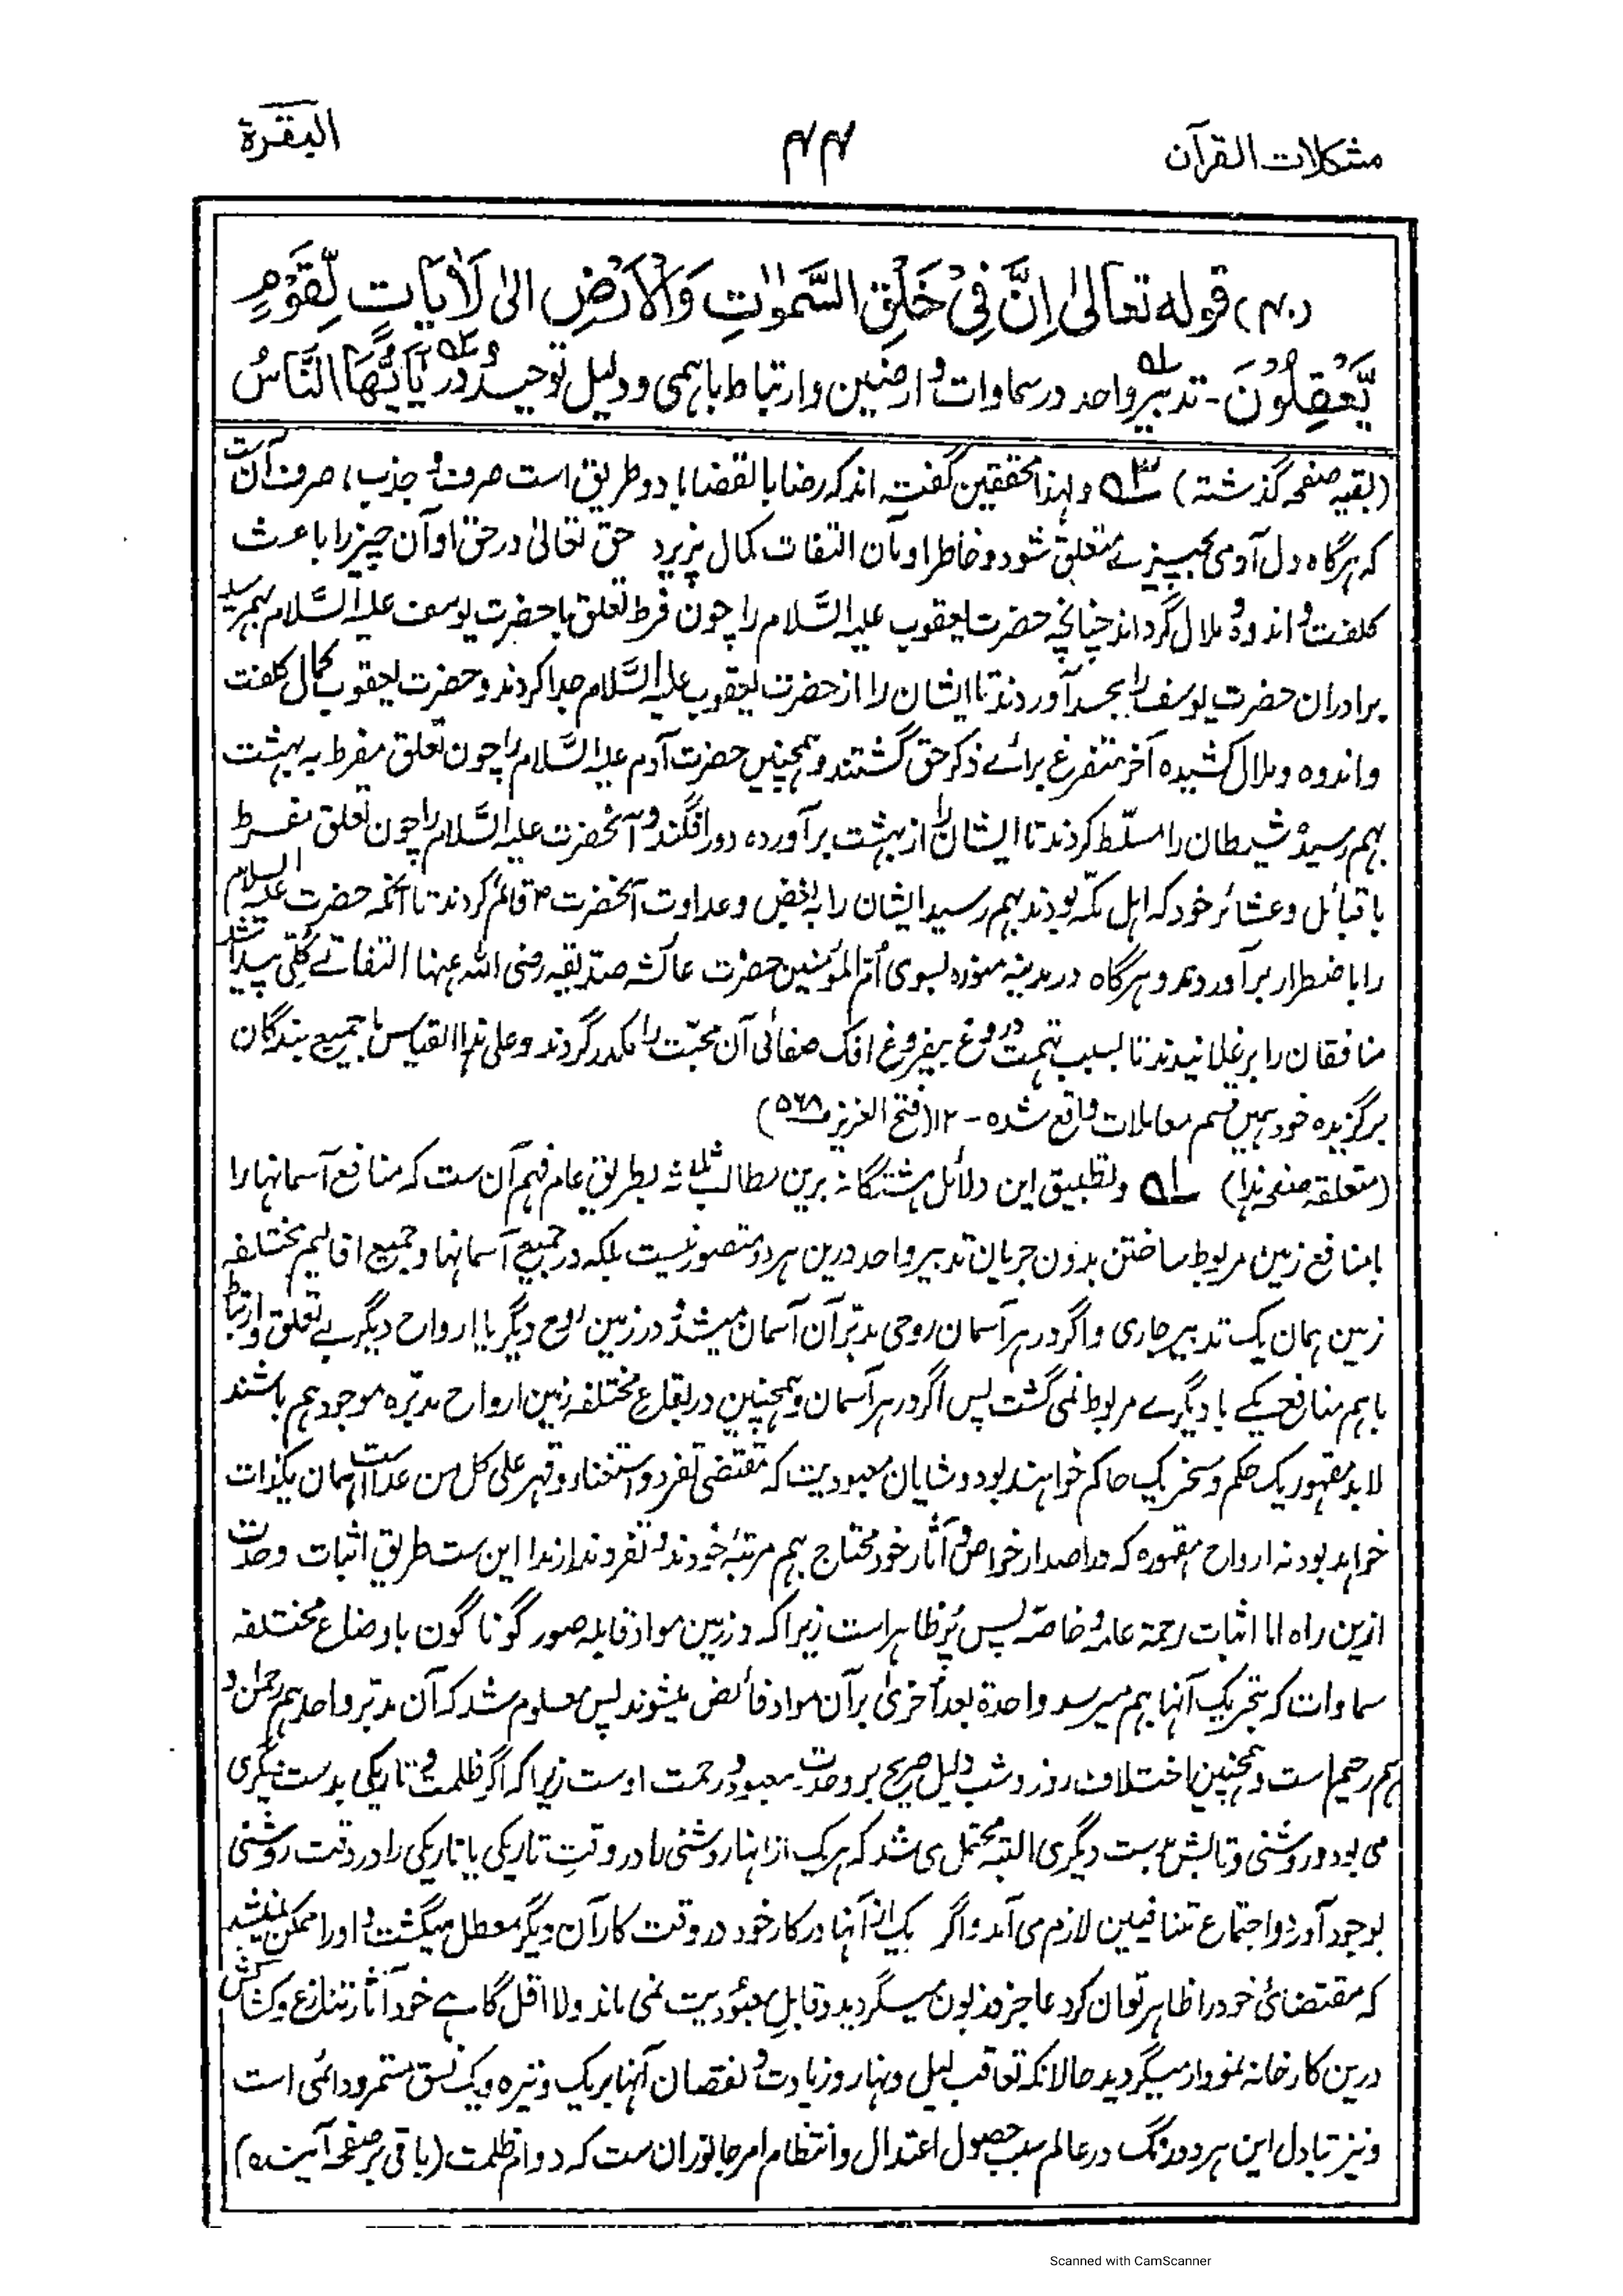 مشکلات القرآن
۴۴
البقرة
(۴۰) قوله تعالیٰ اِنَّ فِیْ خَلْقِ السَّمٰوٰتِ وَالْاَرْضِ الیٰ لَاٰیَاتٍ لِّقَوْمٍ
یَّعْقِلُوْنَ - تدبیر واحد در سماوات و ارضین و ارتباط باہمی و دلیل توحید و در یٰاَیُّهَا النَّاسُ
(بقیہ صفحہ گذشتہ) ۳ ولہٰذا محققین گفتہ اند کہ رضا بالقضا یا دو طریق است صرف و جذب، صرف آن ست
کہ ہرگاہ دل آدمی بچیزے متعلق شود و خاطر او بآن التفات کمال پزیرد حق تعالیٰ در حق او آن چیز را باعث
کلفت و اندوہ و ملال گرداند چنانچہ حضرت یعقوب علیہ السَّلام را چون فرط تعلق با حضرت یوسف علیہ السَّلام بہم رسید
برادران حضرت یوسف را بحسد آوردند تا ایشان را از حضرت یعقوب علیہ السَّلام جدا کردند و حضرت یعقوب کمال کلفت
و اندوہ و ملال کشیدہ آخر متفرغ برائے ذکر حق گشتند و ہمچنین حضرت آدم علیہ السَّلام را چون تعلق مفرط بہ بہشت
بہم رسید شیطان را مسلّط کردند تا ایشان را از بہشت برآوردہ دور افگند و آنحضرت علیہ السَّلام را چون تعلق مفرط
با قبائل و عشائر خود کہ اہل مکّہ بودند بہم رسید ایشان را بہ بغض و عداوت آنحضرت ؐ قائم کردند تا آنکہ حضرت علیہ السلام
را باضطرار برآوردند و ہرگاہ در مدینہ منورہ بسوی اُمّ المؤمنین حضرت عائشہ صدّیقہ رضی اللہ عنہا التفاتے کُلّی پیدا شد
منافقان را برغلانیدند تا بسبب تہمت دروغ بیفروغ افک صفائی آن محبّت را مکدر گردند و علی ہذا القیاس با جمیع بندگان
برگزیدہ خود ہمین قسم معاملات واقع شدہ - ۱۲ (فتح العزیز ص۵۶۸)
(متعلقہ صفحہ ہٰذا) ۱ و تطبیق این دلائل ہشتگانہ برین مطالب ثلاثہ بطریق عام فہم آن ست کہ منافع آسمانہا را
بمنافع زمین مربوط ساختن بدون جریان تدبیر واحد درین ہر دو متصور نیست بلکہ در جمیع آسمانہا و جمیع اقالیم مختلفہ
زمین ہمان یک تدبیر جاری و اگر در ہر آسمان روحی مدبّر آن آسمان میشد و در زمین روح دیگر یا ارواح دیگر بے تعلق و ارتباط
باہم منافع یکے با دیگرے مربوط نمی گشت پس اگر در ہر آسمان و ہمچنین در بقاع مختلفہ زمین ارواح مدبّرہ موجود ہم باشند
لابد مقہور یک حکم و مسخر یک حاکم خواہند بود و شایان معبودیت کہ مقتضی تفرد و استغنا و قہر علی کل من عداہ است ہمان یکذات
خواہد بود نہ ارواح مقہورہ کہ در اصدار خواص و آثار خود محتاج ہم مرتبۂ خودند و تفرد ندارند این ست طریق اثبات وحدت
ازین راہ اما اثبات رحمۃ عامہ و خاصّہ پس پُر ظاہر است زیرا کہ در زمین مواد قابلہ صور گوناگون باوضاع مختلفہ
سماوات کہ بتحریک آنہا بہم میرسد واحدۃ بعد اُخریٰ برآن مواد فائض میشوند پس معلوم شد کہ آن مدبّر واحد ہم رحمٰن و
ہم رحیم است و ہمچنین اختلاف روز و شب دلیل صریح بر وحدت معبود و رحمت اوست زیرا کہ اگر ظلمت و تاریکی بدست یکی
می بود و روشنی و تابش بدست دیگری البتہ محتمل می شد کہ ہر یک ازینہا روشنی را در وقتِ تاریکی یا تاریکی را در وقت روشنی
بوجود آورد و اجتماع متنافیین لازم می آمد و اگر یک از آنہا در کار خود در وقت کار آن دیگر معطل میگشت و او را ممکن نمیشد
کہ مقتضائ خود را ظاہر توان کرد عاجز و زبون میگردید و قابل معبودیت نمی ماند و لا اقل گاہے خود آثار تنازع و کشاکش
درین کارخانہ نمودار میگردید حالانکہ تعاقب لیل و نہار و زیادت و نقصان آنہا بریک وتیرہ و یک نسق مستمر و دائمی است
و نیز تبادل این ہر دو رنگ در عالم سبب حصول اعتدال و انتظام امر جانوران ست کہ دوام ظلمت (باقی بر صفحہ آیندہ)
Scanned with CamScanner